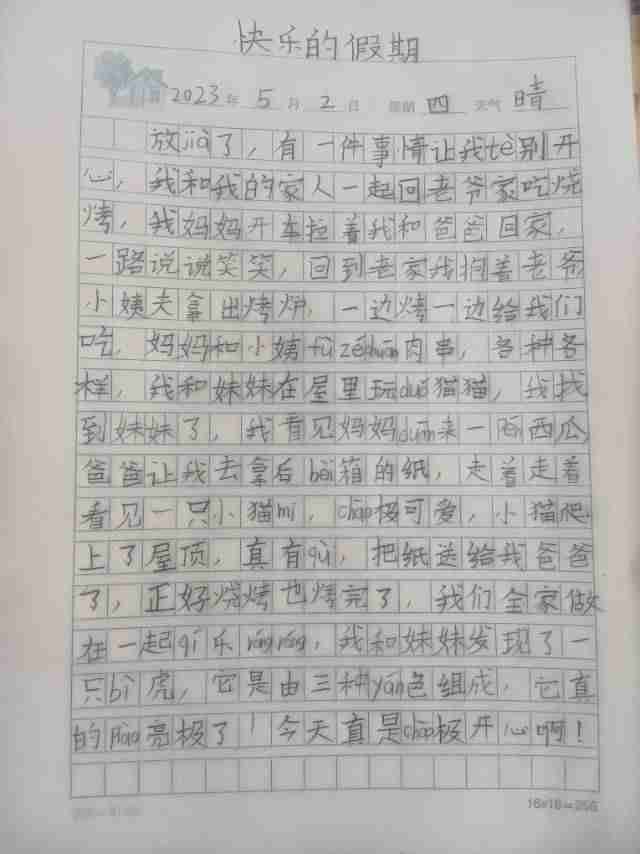 快乐的假期
2023年 5月 2日 星期 四 天气 晴
放jià了，有一件事情让我tè别开
心，我和我的家人一起回老爷家吃烧
烤，我妈妈开车拉着我和爸爸回家，
一路说说笑笑，回到老家我抱着老爷
小姨夫拿出烤炉，一边烤一边给我们
吃，妈妈和小姨fù zé chuān肉串，各种各
样，我和妹妹在屋里玩duǒ猫猫，我找
到妹妹了，我看见妈妈duān来一pén西瓜
爸爸让我去拿后bèi箱的纸，走着走着
看见一只小猫mī，chāo极可爱，小猫爬
上了屋顶，真有qù，把纸送给我爸爸
了，正好烧烤也烤完了，我们全家做
在一起qí乐róng róng，我和妹妹发现了一
只bì虎，它是由三种yán色组成，它真
的piào亮极了！今天真是chāo极开心啊！
16×16=256